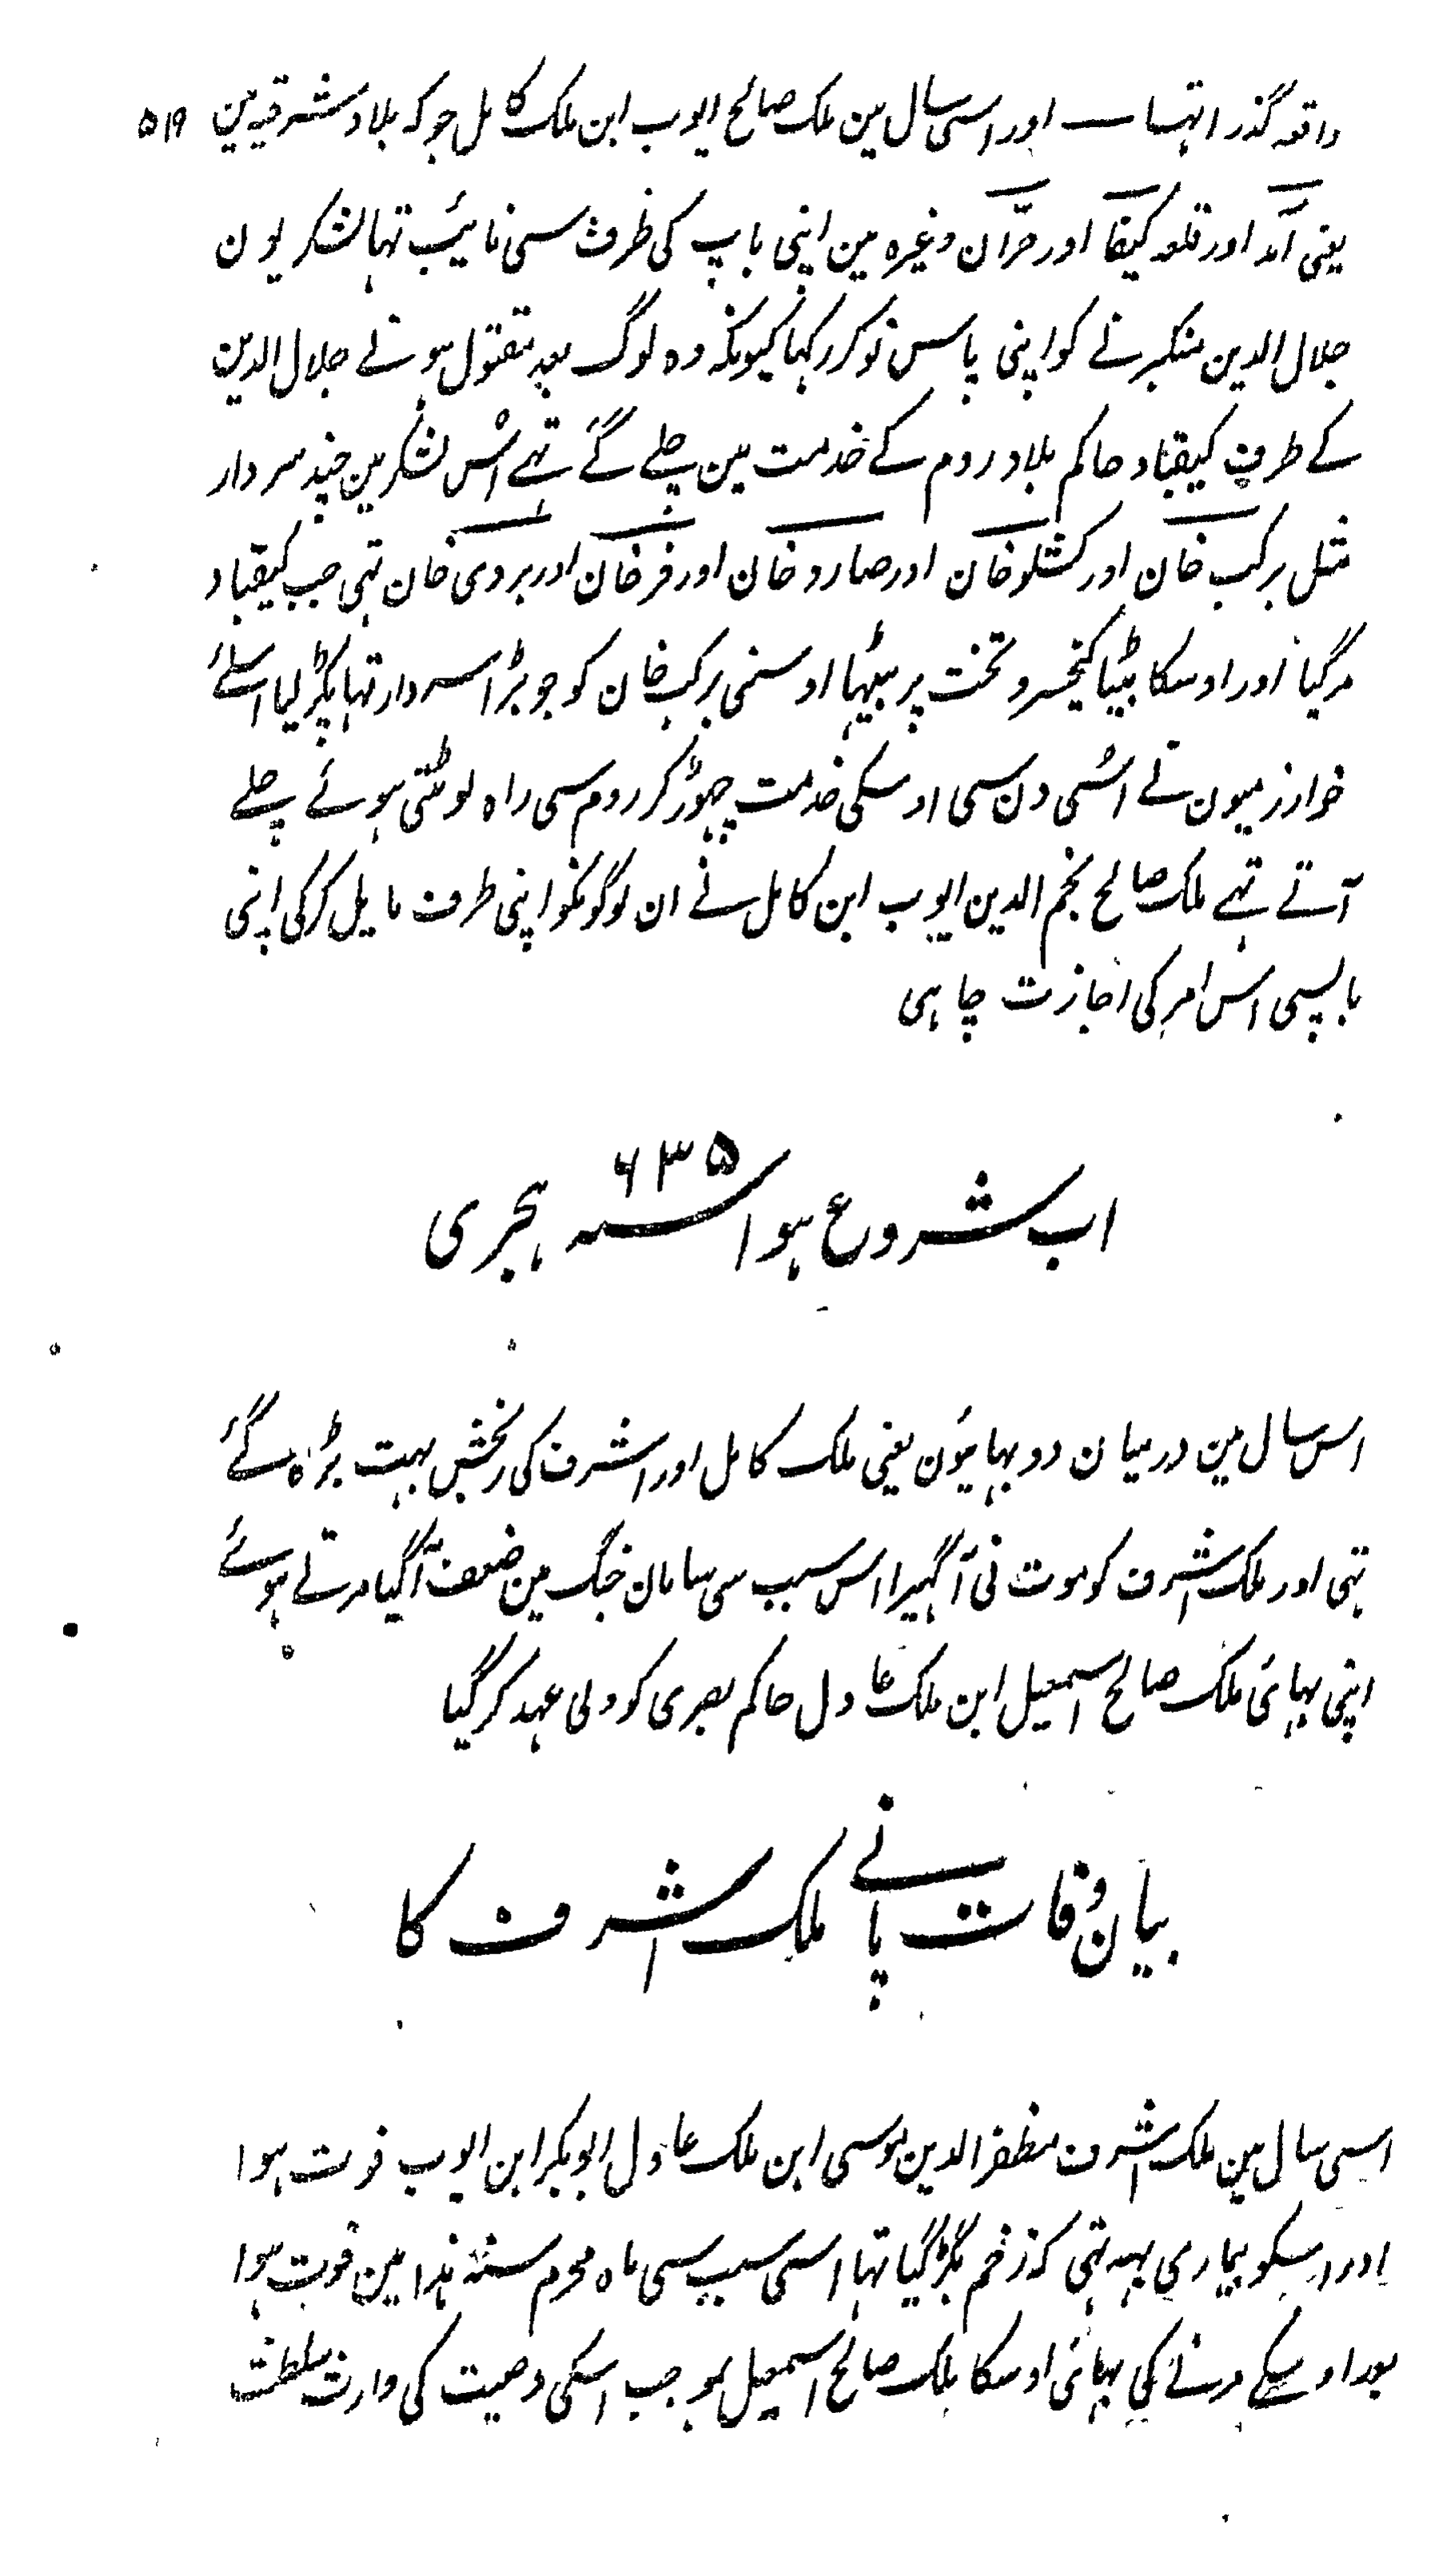 واقعہ گذرا تہا اور اسی سال مین ملک صالح ایوب ابن ملک کامل جو کہ بلاد مشرقیہ مین ۵۱۹
یعنی آمد اور قلعہ کیفا اور حران وغیرہ مین اپنی باپ کی طرف سی نائب تہا لشکریون
جلال الدین منکبرنے کو اپنی پاس نوکر رکہا کیونکہ وہ لوگ بعد مقتول ہونے جلال الدین
کے طرف کیقباد حاکم بلاد روم کے خدمت مین چلے گئے تہے اس لشکر مین چند سردار
مثل برکب خان اور کشلو خان اور صارو خان اور فرخان اور بردی خان تہی جب کیقباد
مر گیا اور اوسکا بیٹا کیخسرو تخت پر بیٹہا اوسنی برکب خان کو جو بڑا سردار تہا پکڑ لیا اسلئے
خوارزمیون نے اسی دن سی اوسکی خدمت چہوڑ کر روم سی راہ لوٹتی ہوئے چلے
آتے تہے ملک صالح نجم الدین ایوب ابن کامل نے ان لوگونکو اپنی طرف مایل کر کی اپنی
باپسی اس امر کی اجازت چاہی
اب شروع ہوا سنہ ۶۳۵ ہجری
اس سال مین درمیان دو بہائیون یعنی ملک کامل اور اشرف کی رنجش بہت بڑہ گئے
تہی اور ملک اشرف کو موت نی آ گہیرا اس سبب سی سامان جنگ مین ضعف آگیا مرتے ہوئے
اپنی بہائی ملک صالح اسمعیل ابن ملک عادل حاکم بصری کو ولی عہد کر گیا
بیان وفات پانے ملک اشرف کا
اسی سال مین ملک اشرف مظفر الدین موسی ابن ملک عادل ابوبکر ابن ایوب فوت ہوا
اور اسکو بیماری یہہ تہی کہ زخم بگڑ گیا تہا اسی سبب سی ماہ محرم سنہ ہذا مین فوت ہوا
بعد اوسکے مرنے کی بہائی اوسکا ملک صالح اسمعیل بموجب اسکی وصیت کی وارث سلطنت